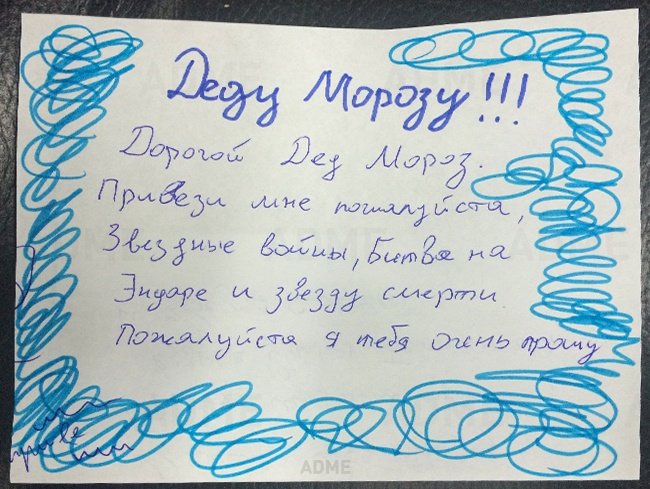 Деду Морозу!!!
Дорогой Дед Мороз.
Привези мне пожалуйста,
Звездные войны, Битва на
Эндаре и звезду смерти.
Пожалуйста я тебя очень прошу
ADME